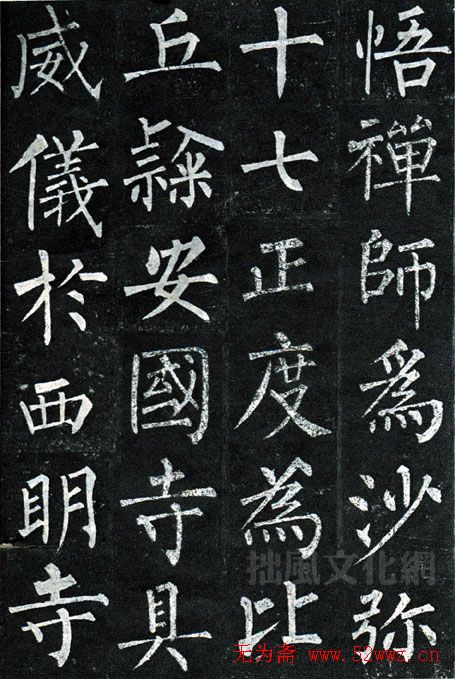 悟禪師爲沙弥
十七正度為比
丘隸安國寺具
威儀於西眀寺
拙風文化網
无为斋 www.52wwz.cn